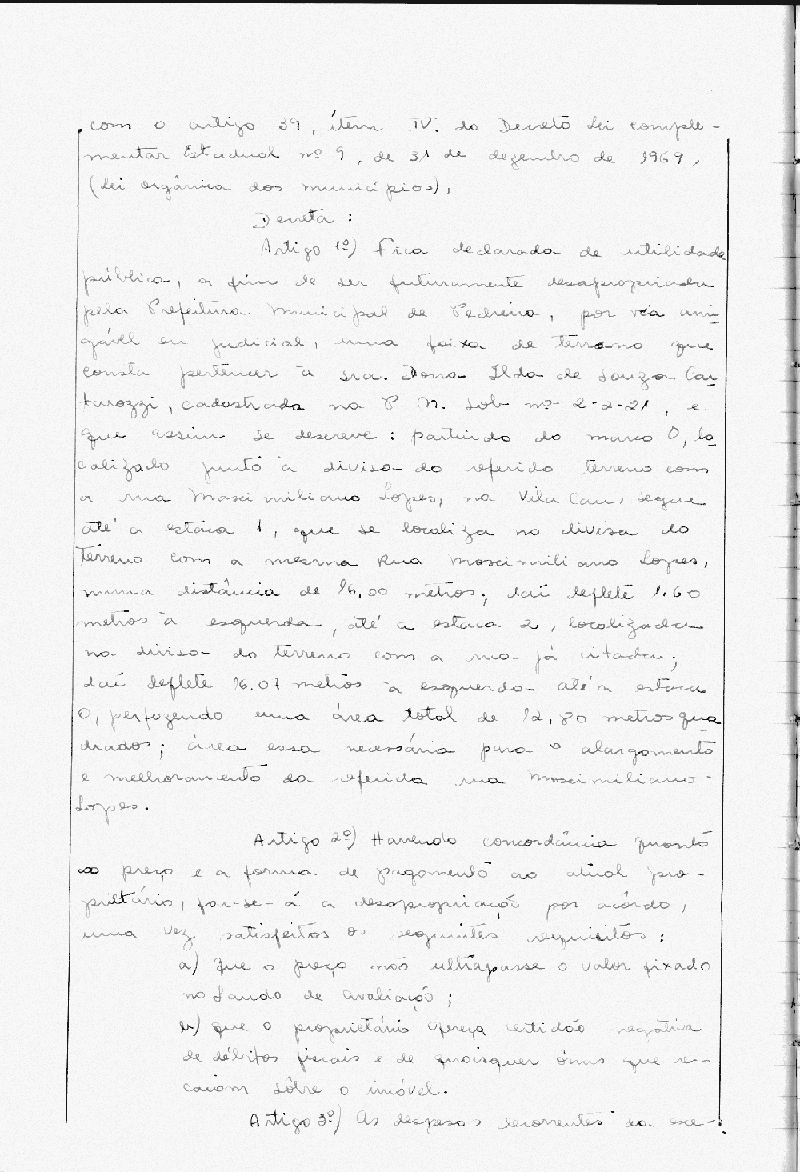 com o artigo 39, ítem IV. do Decreto Lei comple-
mentar Estadual nº 9, de 31 de dezembro de 1969,
(Lei orgânica dos municípios),
Decreta:
Artigo 1º) Fica declarada de utilidade
pública, a fim de ser futuramente desapropriada
pela Prefeitura Municipal de Pedreira, por via ami-
gável ou judicial, uma faixa de terreno que
consta pertencer à sra. Dona Ilda de Souza Can-
tarozzi, cadastrada na P.M. sob nº 2-2-21, e
que assim se descreve: partindo do marco 0, lo
calizado junto à divisa do referido terreno com
a rua Moscimiliano Lopes, na Vila Can, segue
até a estaca 1, que se localiza na divisa do
terreno com a mesma Rua Moscimiliano Lopes,
numa distância de 16,00 metros; daí deflete 1.60
metros à esquerda, até a estaca 2, localizada
na divisa do terreno com a rua já citada;
daí deflete 16.07 metros à esquerda até a estaca
0, perfazendo uma área total de 12,80 metros qua
drados; área essa necessária para o alargamento
e melhoramento da referida rua Moscimiliano
Lopes.
Artigo 2º) Havendo concordância quanto
ao preço e a forma de pagamento ao atual pro-
prietário, far-se-á a desapropriação por acôrdo,
uma vez satisfeitos os seguintes requisitos:
a) Que o preço não ultrapasse o valor fixado
no Laudo de avaliação;
b) que o proprietário ofereça certidão negativa
de débitos fiscais e de quaisquer ônus que re-
caiam sôbre o imóvel.
Artigo 3º) As despesas decorrentes da exe-